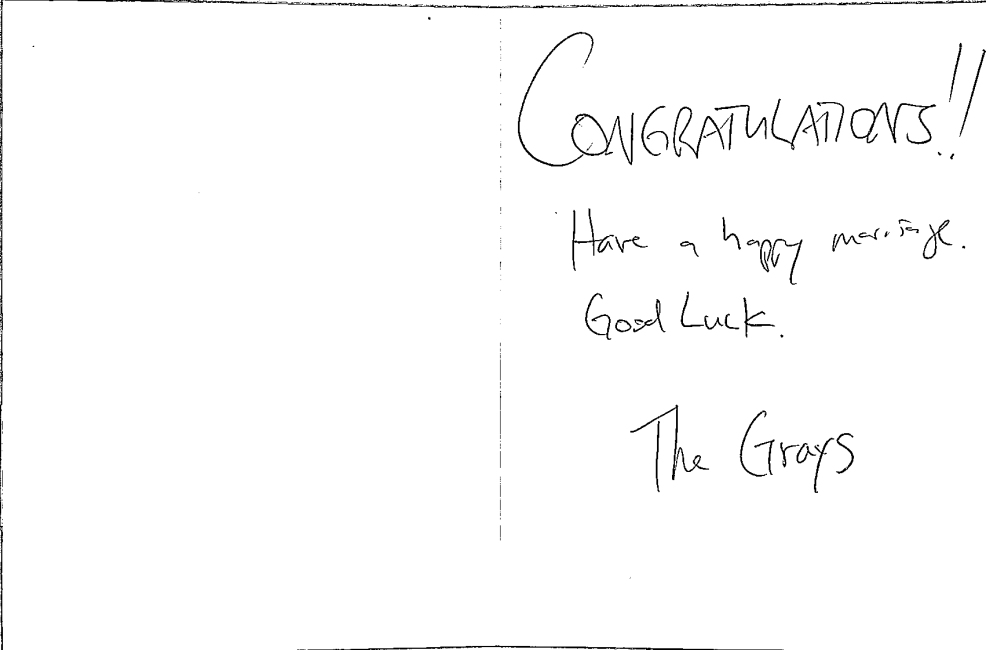 CONGRATULATIONS!!
Have a happy marriage.
Good Luck.
The Grays